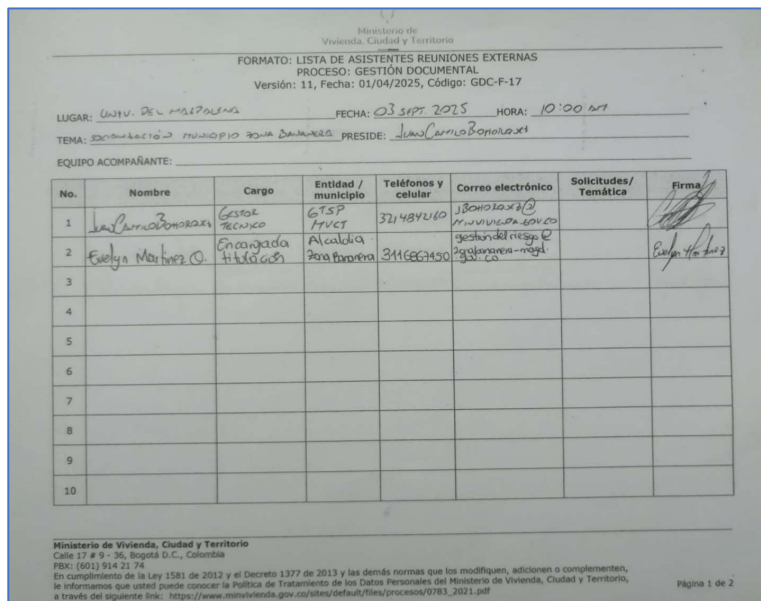 Ministerio de
Vivienda, Ciudad y Territorio
FORMATO: LISTA DE ASISTENTES REUNIONES EXTERNAS
PROCESO: GESTIÓN DOCUMENTAL
Versión: 11, Fecha: 01/04/2025, Código: GDC-F-17
LUGAR: UNIV. DEL MAGDALENA FECHA: 03 SEPT. 2025 HORA: 10:00 AM
TEMA: MUNICIPIO ZONA BANANERA PRESIDE: JUAN CAMILO BOHORQUEZ
EQUIPO ACOMPAÑANTE:
No. Nombre Cargo Entidad / municipio Teléfonos y celular Correo electrónico Solicitudes/ Temática Firma
1 JUAN CAMILO GESTOR TECNICO GTSP MVCT 3214842160
2 Evelyn Martinez O. Encargada titulación Alcaldia Zona Bananera 3116867450 gestiondelriesgo@ zonabananera-magd. gov.co Evelyn Martinez
3
4
5
6
7
8
9
10
Ministerio de Vivienda, Ciudad y Territorio
Calle 17 # 9 - 36, Bogotá D.C., Colombia
PBX: (601) 914 21 74
En cumplimiento de la Ley 1581 de 2012 y el Decreto 1377 de 2013 y las demás normas que los modifiquen, adicionen o complementen,
le informamos que usted puede conocer la Política de Tratamiento de los Datos Personales del Ministerio de Vivienda, Ciudad y Territorio,
a través del siguiente link: https://www.minvivienda.gov.co/sites/default/files/procesos/0783_2021.pdf
Página 1 de 2